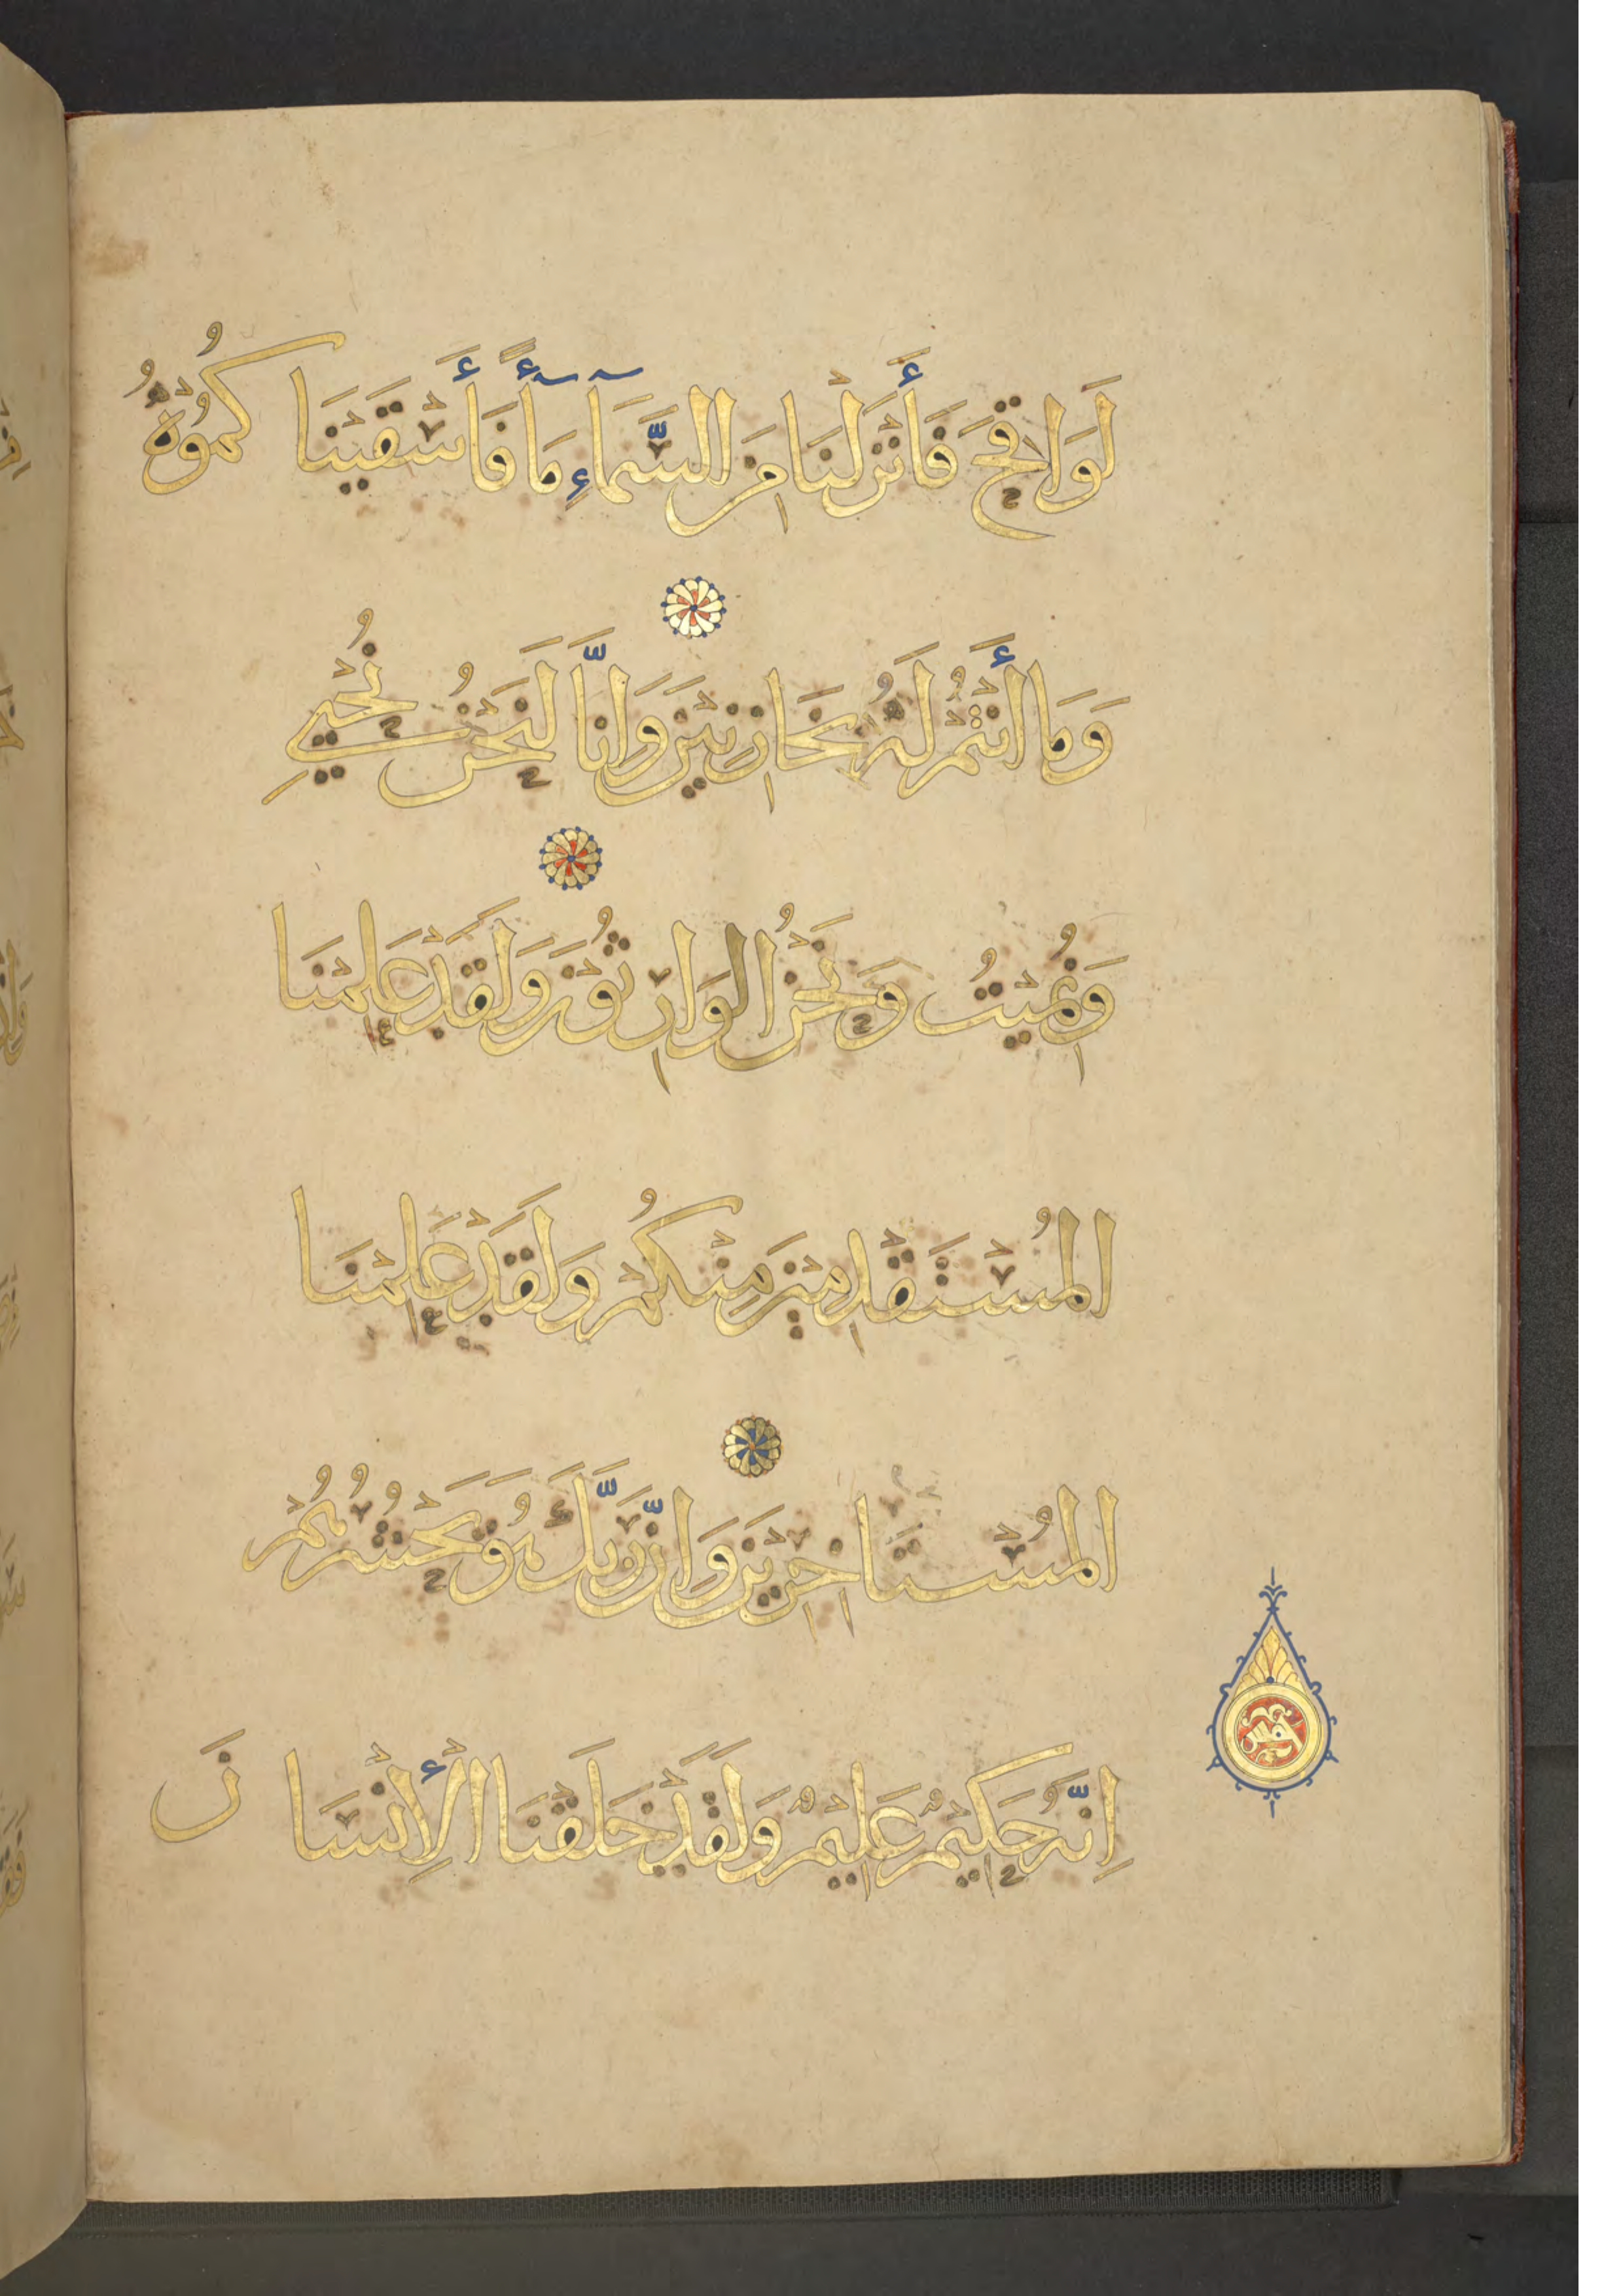 لَوَاقِحَ فَأَنْزَلْنَا مِنَ السَّمَآءِ مَآءً فَأَسْقَيْنَاكُمُوهُ
وَمَا أَنْتُمْ لَهُ بِخَازِنِيْنَ وَاِنَّا لَنَحْنُ نُحْيِي
وَنُمِيْتُ وَنَحْنُ الوَارِثُوْنَ وَلَقَدْ عَلِمْنَا
المُسْتَقْدِمِيْنَ مِنْكُمْ وَلَقَدْ عَلِمْنَا
المُسْتَاخِرِيْنَ وَاِنَّ رَبَّكَ هُوَ يَحْشُرُهُمْ
اِنَّهُ حَكِيْمٌ عَلِيْمٌ وَلَقَدْ خَلَقْنَا الْأِنْسَانَ